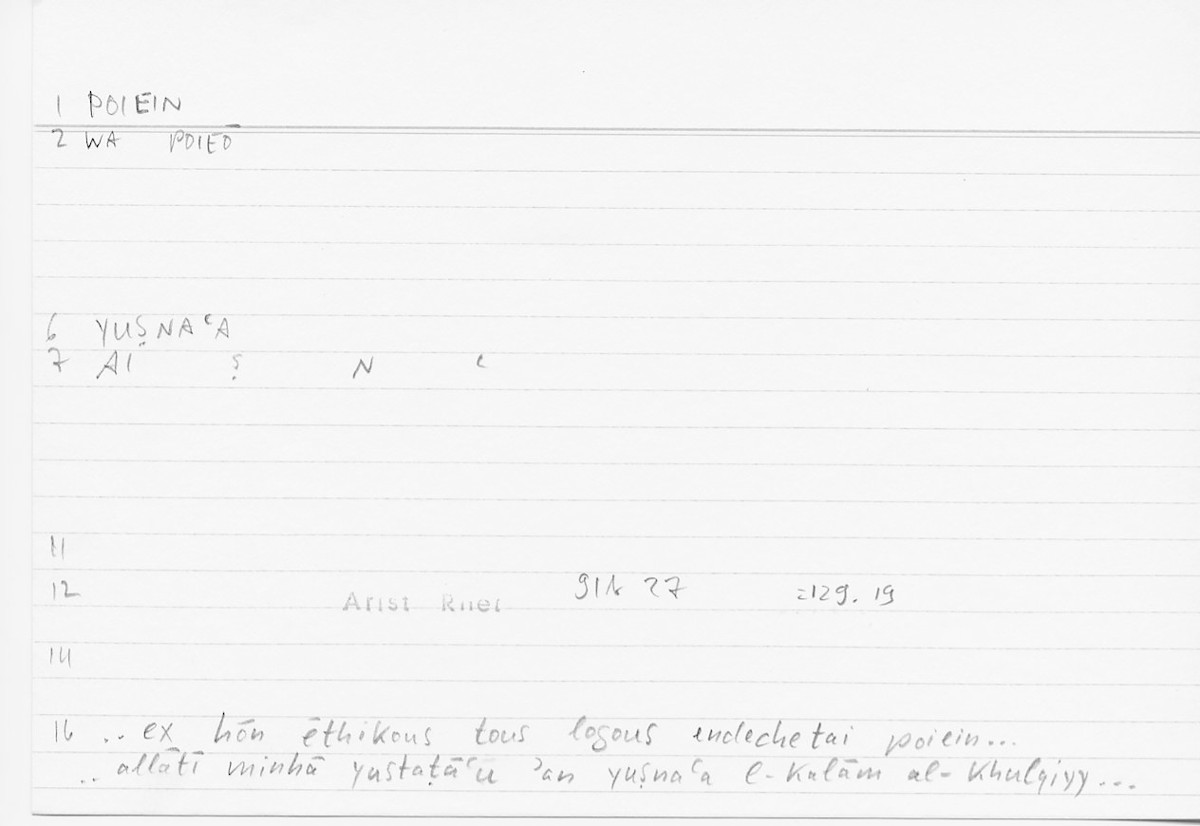 1 POIEIN
2 WA POIEŌ
6 YUṢNAʿA
7 AI Ṣ N ʿ
11
12 Arist Rhet 91b 27 =129. 19
14
16 .. ex hōn ēthikous tous logous endechetai poiein...
.. allātī minhā yustaṭāʿu ʾan yuṣnaʿa l-kalām al-khulqiyy...